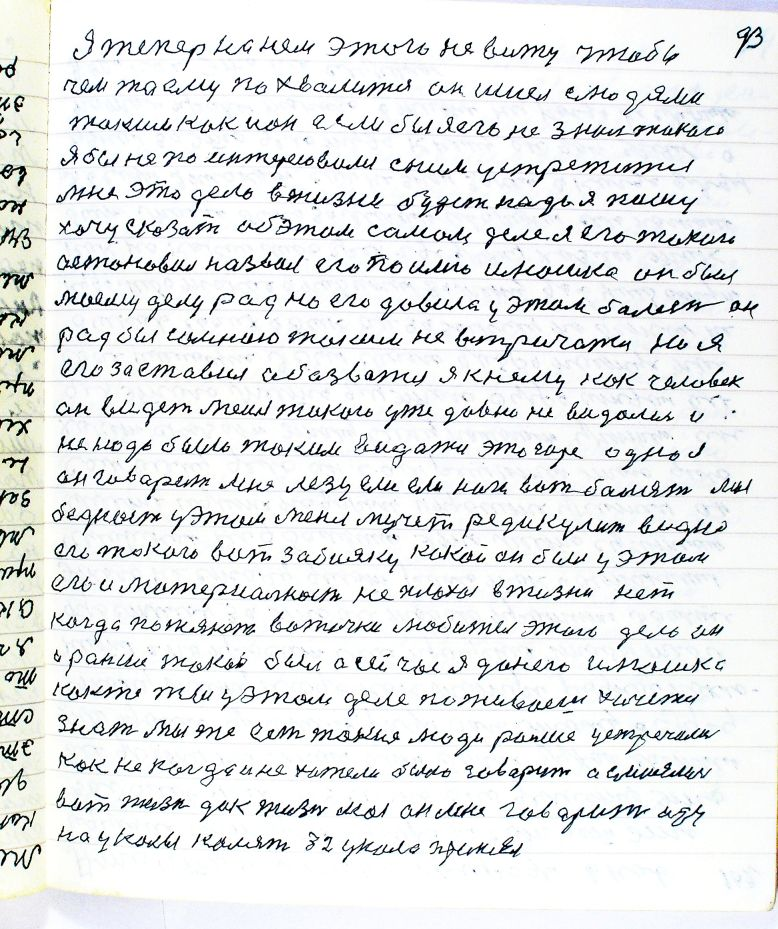 93
Я тепер на нем этого не вижу чтобы
чем таему похвалитя он имел слюдями
таким как и он если бы я его не знал такого
я бы не по интересовался с ним устретится
мне это дело вжизне будет надо я пошу
хочу сказать об этом самом деле я его такого
астоновил назвал его по имю имошка он был
моему делу рад но его довила у этом балезт он
рад был сомною таким не встричатя но я
его заставил абазватя я к нему как человек
он видет меня такого уже давно не видолися и
не надо было таким видатя это горе одно я
он говарет мне лезу еле ели ноги вот балят мы
беднаст у этом меня мучет редикулит видно
его такого вот забияку какой он был у этом
его и материалност не плохоя вжизни нет
когда потянот воточки любител этого дело он
и ранше такой был а сейчас я донего имошка
как те ты у этом деле поживаеш хичетя
знат мы же вет такие люди ранше устречали
как не когда и не хатели было говарит а смиялися
вот жизн дак жизн моя он мне говарит иду
на уколы колят 32 укола принял